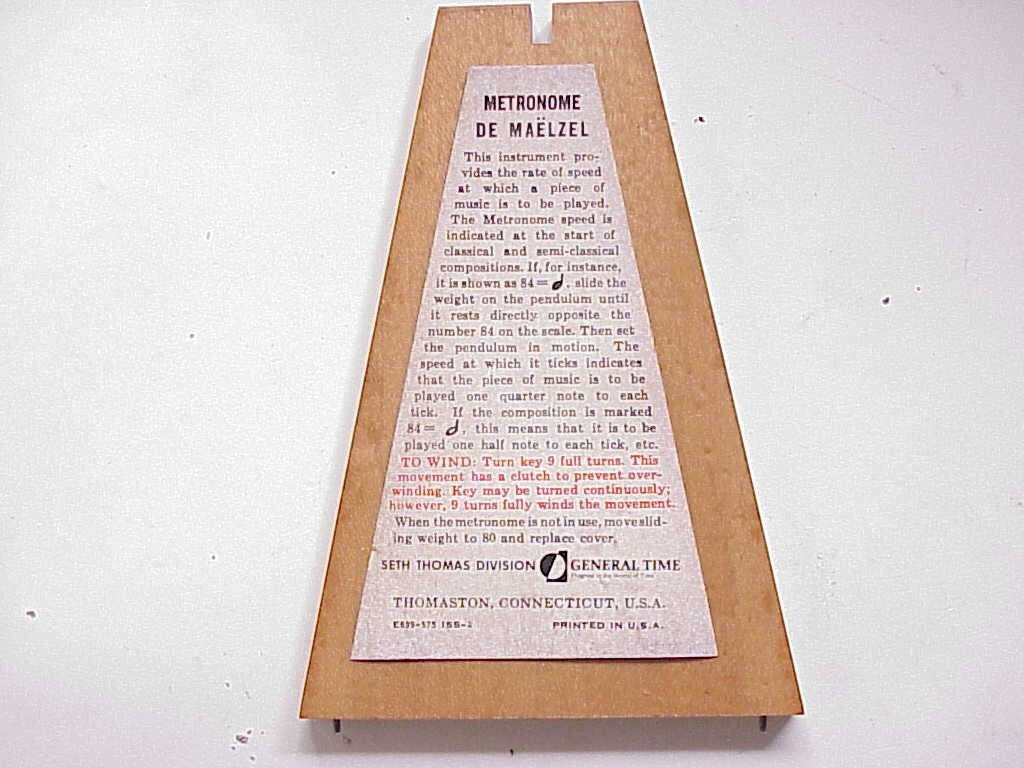 METRONOME
DE MAËLZEL
This instrument pro-
vides the rate of speed
at which a piece of
music is to be played.
The Metronome speed is
indicated at the start of
classical and semi-classical
compositions. If, for instance,
it is shown as 84 = , slide the
weight on the pendulum until
it rests directly opposite the
number 84 on the scale. Then set
the pendulum in motion. The
speed at which it ticks indicates
that the piece of music is to be
played one quarter note to each
tick. If the composition is marked
84 = , this means that it is to be
played one half note to each tick, etc.
TO WIND: Turn key 9 full turns. This
movement has a clutch to prevent over-
winding. Key may be turned continuously;
however, 9 turns fully winds the movement.
When the metronome is not in use, move slid-
ing weight to 80 and replace cover.
SETH THOMAS DIVISION GENERAL TIME
Progress in the World of Time
THOMASTON, CONNECTICUT, U.S.A.
ISS-2 PRINTED IN U.S.A.